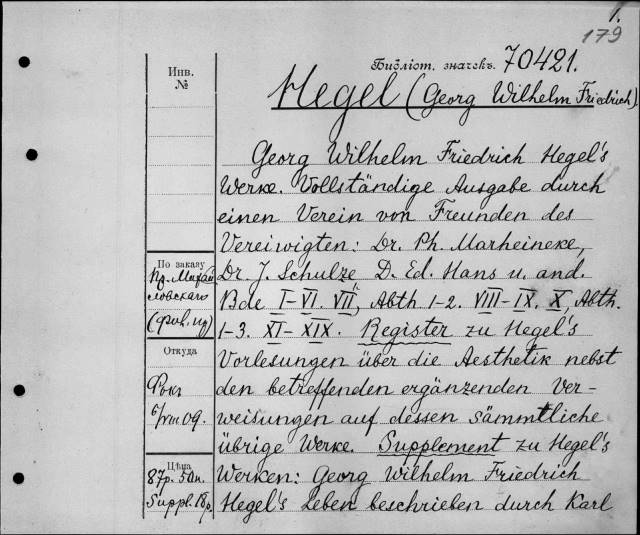 1.
179
Библіот. значекъ. 70421.
Инв.
№
Hegel (Georg Wilhelm Friedrich)
Georg Wilhelm Friedrich Hegel's
Werke. Vollständige Ausgabe durch
einen Verein von Freunden des
Vereiwigten: Dr. Ph. Marheineke,
Dr. J. Schulze D. Ed. Hans u. and.
Bde I-VI. VII, Abth 1-2. VIII-IX. X, Abth.
1-3. XI-XIX. Register zu Hegel's
Vorlesungen über die Aesthetik nebst
den betreffenden ergänzenden Ver-
weisungen auf dessen sämmtliche
übrige Werke. Supplement zu Hegel's
Werken: Georg Wilhelm Friedrich
Hegel's Leben beschrieben durch Karl
По заказу
Пр. Михай
ловскаго
Откуда
Фокъ
09.
Цѣна
87р. 50п.
Suppl. 18р.